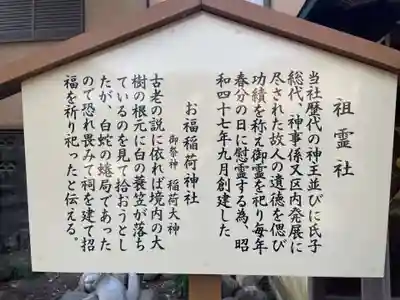 祖霊社
当社歴代の神主並びに氏子
総代、神事係又区内発展に
尽された故人の遺徳を偲び
功績を称え御霊を祀り毎年
春分の日に慰霊する為、昭
和四十七年九月創建した
お福稲荷神社
御祭神 稲荷大神
古老の説に依れば境内の大
樹の根元に白の蓑笠が落ち
ているのを見て拾おうとし
たが、白蛇の蜷局であった
ので恐れ畏みて祠を建て招
福を祈り祀ったと伝える。